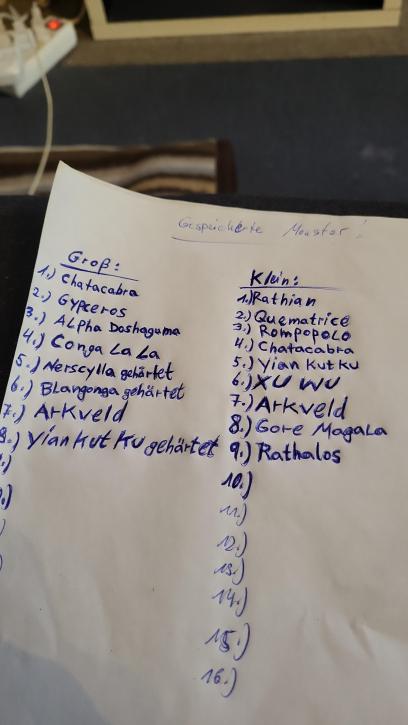 Gespeicherte Monster:
Groß:
1.) Chatacabra
2.) Gypceros
3.) Alpha Doshaguma
4.) Conga La La
5.) Nerscylla gehärtet
6.) Blangonga gehärtet
7.) Arkveld
8.) Yian Kut Ku gehärtet
Klein:
1.) Rathian
2.) Quematrice
3.) Rompopolo
4.) Chatacabra
5.) Yian Kut Ku
6.) XU WU
7.) Arkveld
8.) Gore Magala
9.) Rathalos
10.)
11.)
12.)
13.)
14.)
15.)
16.)